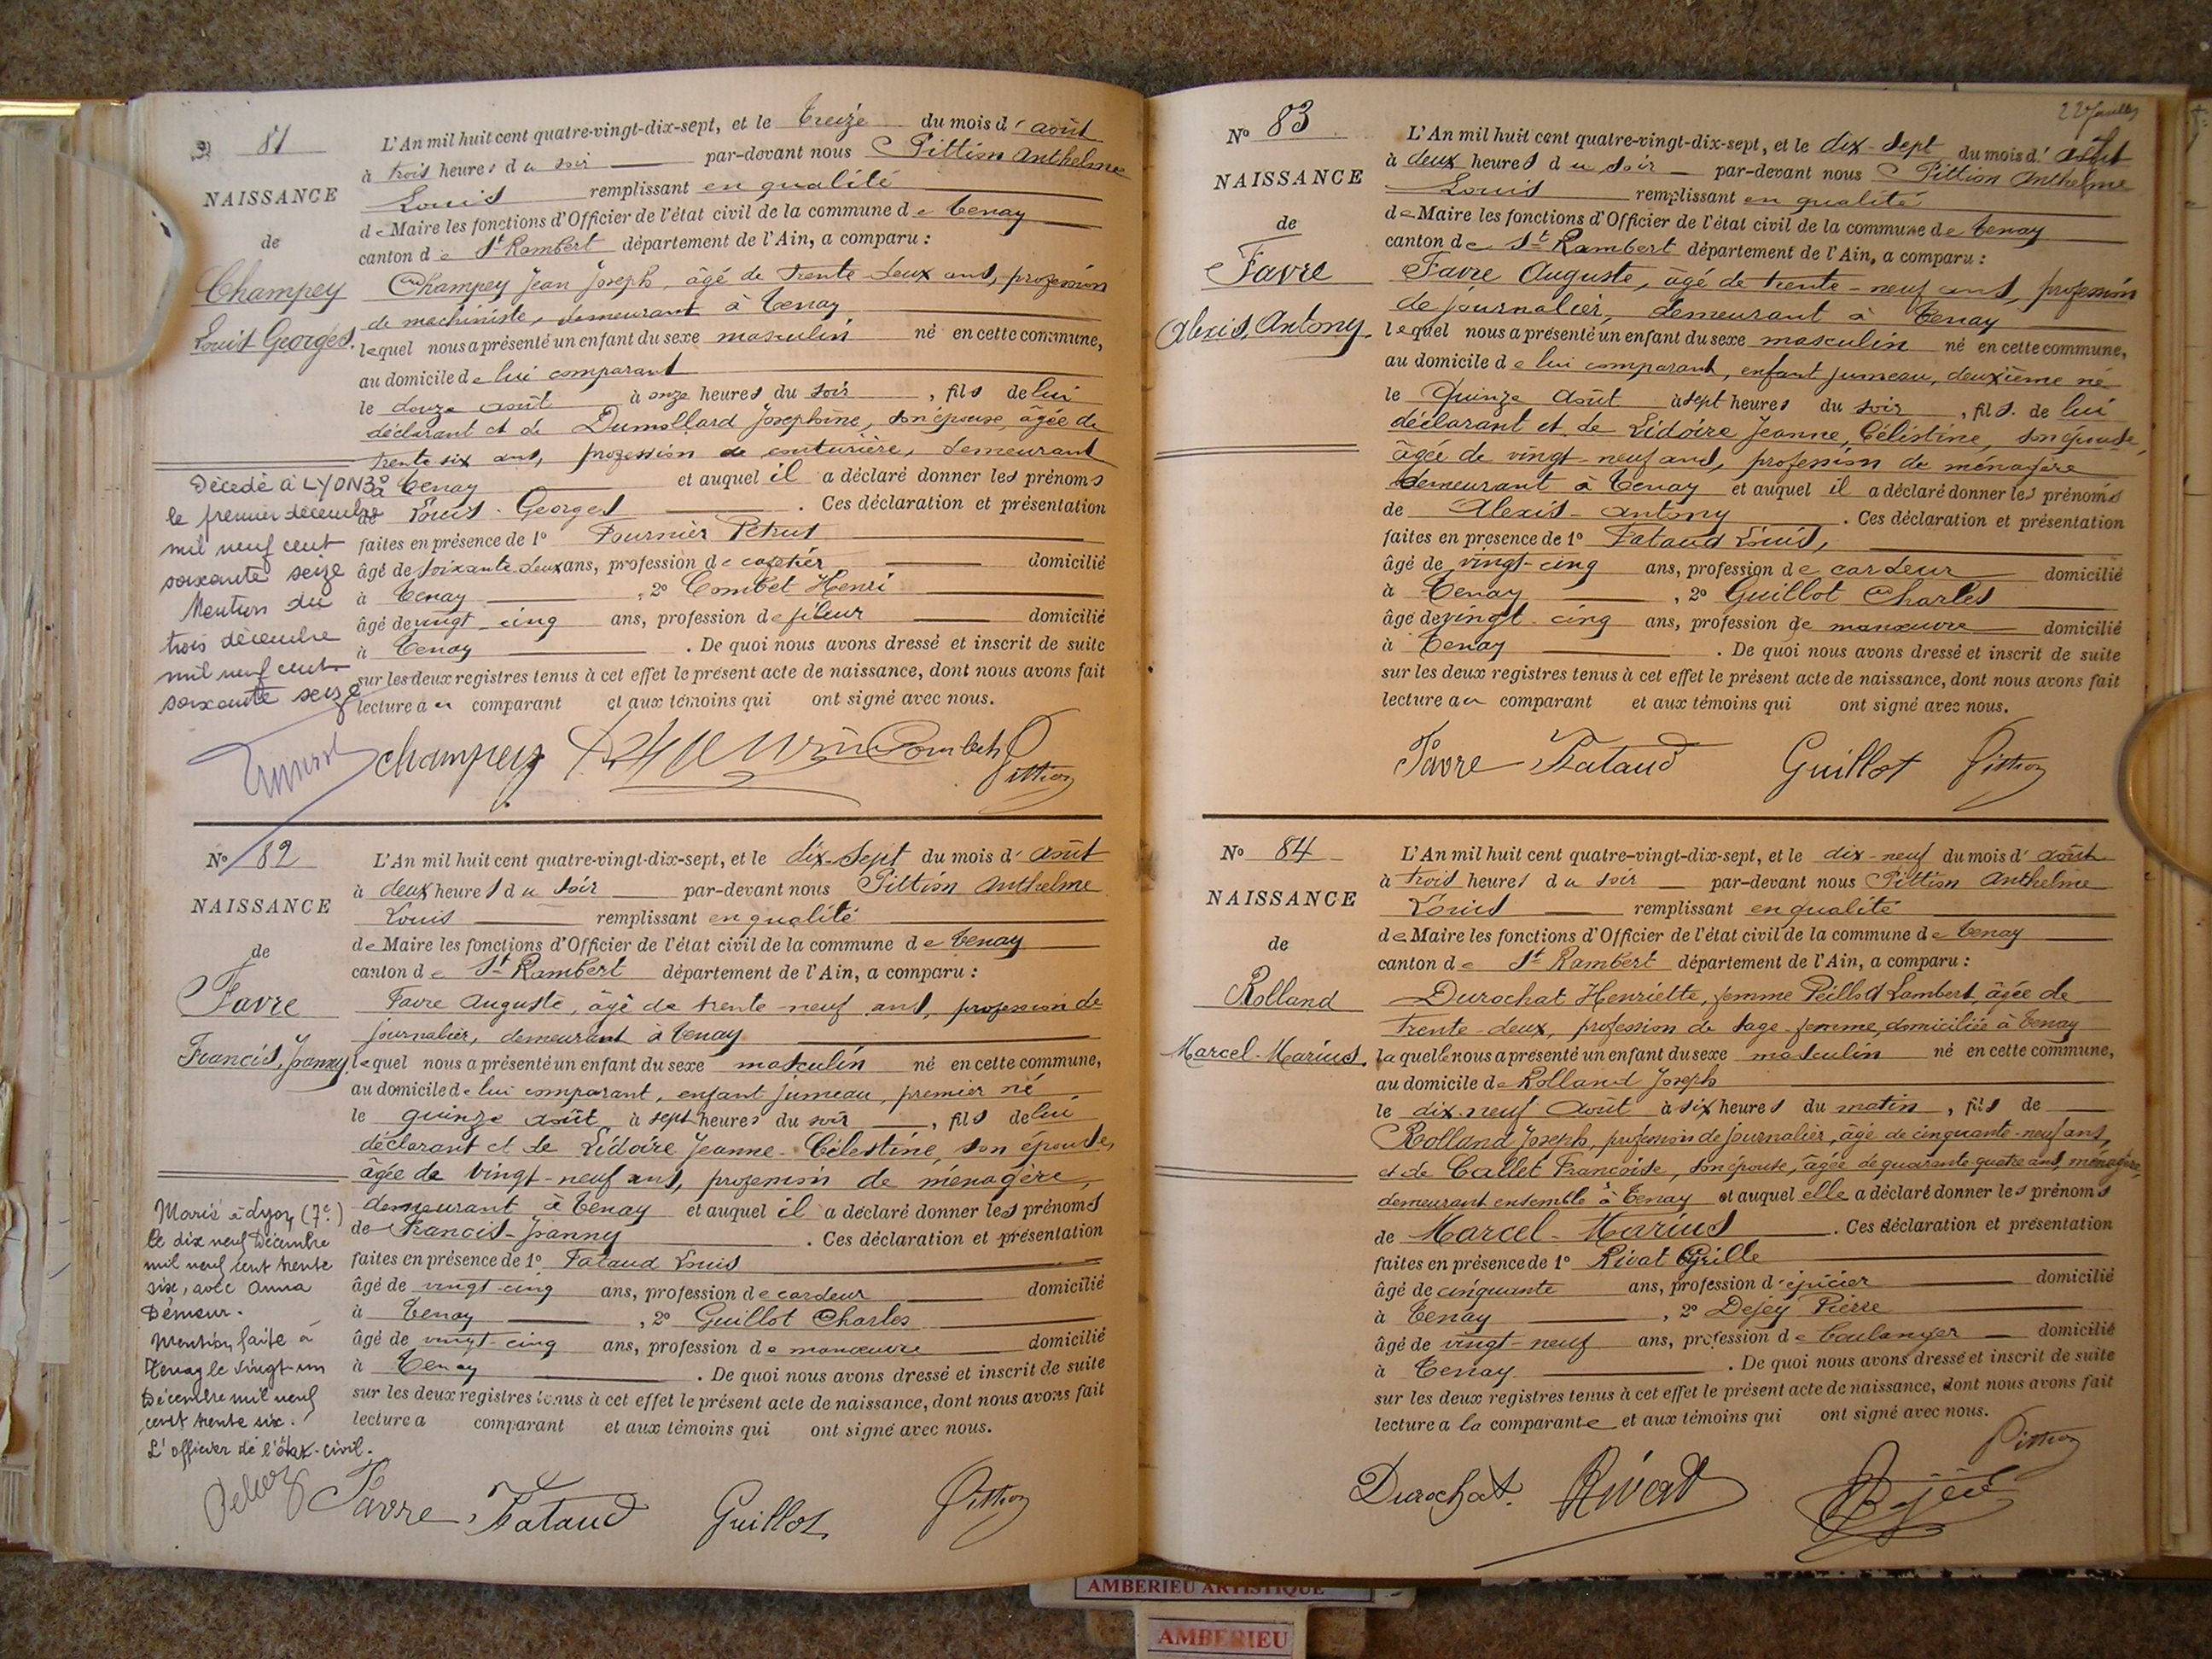 81
NAISSANCE
de
Champey
Louis Georges.
L'An mil huit cent quatre-vingt-dix-sept, et le treize du mois d'août
à trois heures du soir par-devant nous Pittion Anthelme
Louis remplissant en qualité
de Maire les fonctions d'Officier de l'état civil de la commune de Tenay
canton de St Rambert département de l'Ain, a comparu :
Champey Jean Joseph, âgé de trente-deux ans, profession
de machiniste, demeurant à Tenay
lequel nous a présenté un enfant du sexe masculin né en cette commune,
au domicile de lui comparant
le douze août à onze heures du soir, fils de lui
déclarant et de Dumollard Josephine, son épouse, âgée de
trente six ans, profession de couturière, demeurant
à Tenay et auquel il a déclaré donner les prénoms
de Louis-Georges. Ces déclaration et présentation
faites en présence de 1o Fournier Petrus
âgé de soixante-deux ans, profession de cafetier domicilié
à Tenay, 2o Combet Henri
âgé de vingt-cinq ans, profession de fileur domicilié
à Tenay. De quoi nous avons dressé et inscrit de suite
sur les deux registres tenus à cet effet le présent acte de naissance, dont nous avons fait
lecture au comparant et aux témoins qui ont signé avec nous.
Décédé à LYON 3e
le premier décembre
mil neuf cent
soixante seize
Mention du
trois décembre
mil neuf cent
soixante seize
Champey Combet Pittion
No 82
NAISSANCE
de
Favre
Francis, Joanny.
L'An mil huit cent quatre-vingt-dix-sept, et le dix-sept du mois d'août
à deux heures du soir par-devant nous Pittion Anthelme
Louis remplissant en qualité
de Maire les fonctions d'Officier de l'état civil de la commune de Tenay
canton de St Rambert département de l'Ain, a comparu :
Favre Auguste, âgé de trente-neuf ans, profession de
journalier, demeurant à Tenay
lequel nous a présenté un enfant du sexe masculin né en cette commune,
au domicile de lui comparant, enfant jumeau, premier né
le quinze août à sept heures du soir, fils de lui
déclarant et de Lidoire Jeanne-Célestine, son épouse,
âgée de vingt-neuf ans, profession de ménagère,
demeurant à Tenay et auquel il a déclaré donner les prénoms
de Francis-Joanny. Ces déclaration et présentation
faites en présence de 1o Fataud Louis
âgé de vingt-cinq ans, profession de cardeur domicilié
à Tenay, 2o Guillot Charles
âgé de vingt-cinq ans, profession de manœuvre domicilié
à Tenay. De quoi nous avons dressé et inscrit de suite
sur les deux registres tenus à cet effet le présent acte de naissance, dont nous avons fait
lecture a comparant et aux témoins qui ont signé avec nous.
Marié à Lyon (7e)
le dix neuf Décembre
mil neuf cent trente
six, avec Anna
Démeur.
Mention faite à
Tenay le vingt-un
Décembre mil neuf
cent trente six.
L'officier de l'état-civil.
Favre Fataud Guillot Pittion
22e feuillet
No 83
NAISSANCE
de
Favre
Alexis, Antony.
L'An mil huit cent quatre-vingt-dix-sept, et le dix-sept du mois d'août
à deux heures du soir par-devant nous Pittion Anthelme
Louis remplissant en qualité
de Maire les fonctions d'Officier de l'état civil de la commune de Tenay
canton de St Rambert département de l'Ain, a comparu :
Favre Auguste, âgé de trente-neuf ans, profession
de journalier, demeurant à Tenay
lequel nous a présenté un enfant du sexe masculin né en cette commune,
au domicile de lui comparant, enfant jumeau, deuxième né
le quinze août à sept heures du soir, fils de lui
déclarant et de Lidoire Jeanne, Célestine, son épouse,
âgée de vingt-neuf ans, profession de ménagère
demeurant à Tenay et auquel il a déclaré donner les prénoms
de Alexis-Antony. Ces déclaration et présentation
faites en présence de 1o Fataud Louis,
âgé de vingt-cinq ans, profession de cardeur domicilié
à Tenay, 2o Guillot Charles
âgé de vingt-cinq ans, profession de manœuvre domicilié
à Tenay. De quoi nous avons dressé et inscrit de suite
sur les deux registres tenus à cet effet le présent acte de naissance, dont nous avons fait
lecture au comparant et aux témoins qui ont signé avec nous.
Favre Fataud Guillot Pittion
No 84
NAISSANCE
de
Rolland
Marcel-Marius.
L'An mil huit cent quatre-vingt-dix-sept, et le dix-neuf du mois d'août
à trois heures du soir par-devant nous Pittion Anthelme
Louis remplissant en qualité
de Maire les fonctions d'Officier de l'état civil de la commune de Tenay
canton de St Rambert département de l'Ain, a comparu :
Durochat Henriette, femme Peillod Lambert, âgée de
trente-deux, profession de sage-femme, domiciliée à Tenay
laquelle nous a présenté un enfant du sexe masculin né en cette commune,
au domicile de Rolland Joseph
le dix-neuf août à six heures du matin, fils de
Rolland Joseph, profession de journalier, âgé de cinquante-neuf ans,
et de Callet Françoise, son épouse, âgée de quarante-quatre ans, ménagère,
demeurant ensemble à Tenay et auquel elle a déclaré donner les prénoms
de Marcel-Marius. Ces déclaration et présentation
faites en présence de 1o Rivat Cyrille
âgé de cinquante ans, profession d'épicier domicilié
à Tenay, 2o Dejey Pierre
âgé de vingt-neuf ans, profession de boulanger domicilié
à Tenay. De quoi nous avons dressé et inscrit de suite
sur les deux registres tenus à cet effet le présent acte de naissance, dont nous avons fait
lecture a la comparante et aux témoins qui ont signé avec nous.
Pittion
Durochat. Rivat
AMBERIEU ARTISTIQUE
AMBERIEU